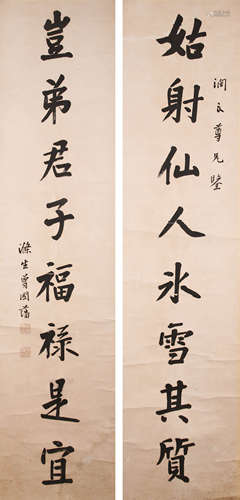 姑射仙人冰雪其質
潤之尊兄鑒
豈弟君子福祿是宜
滌生曾國藩